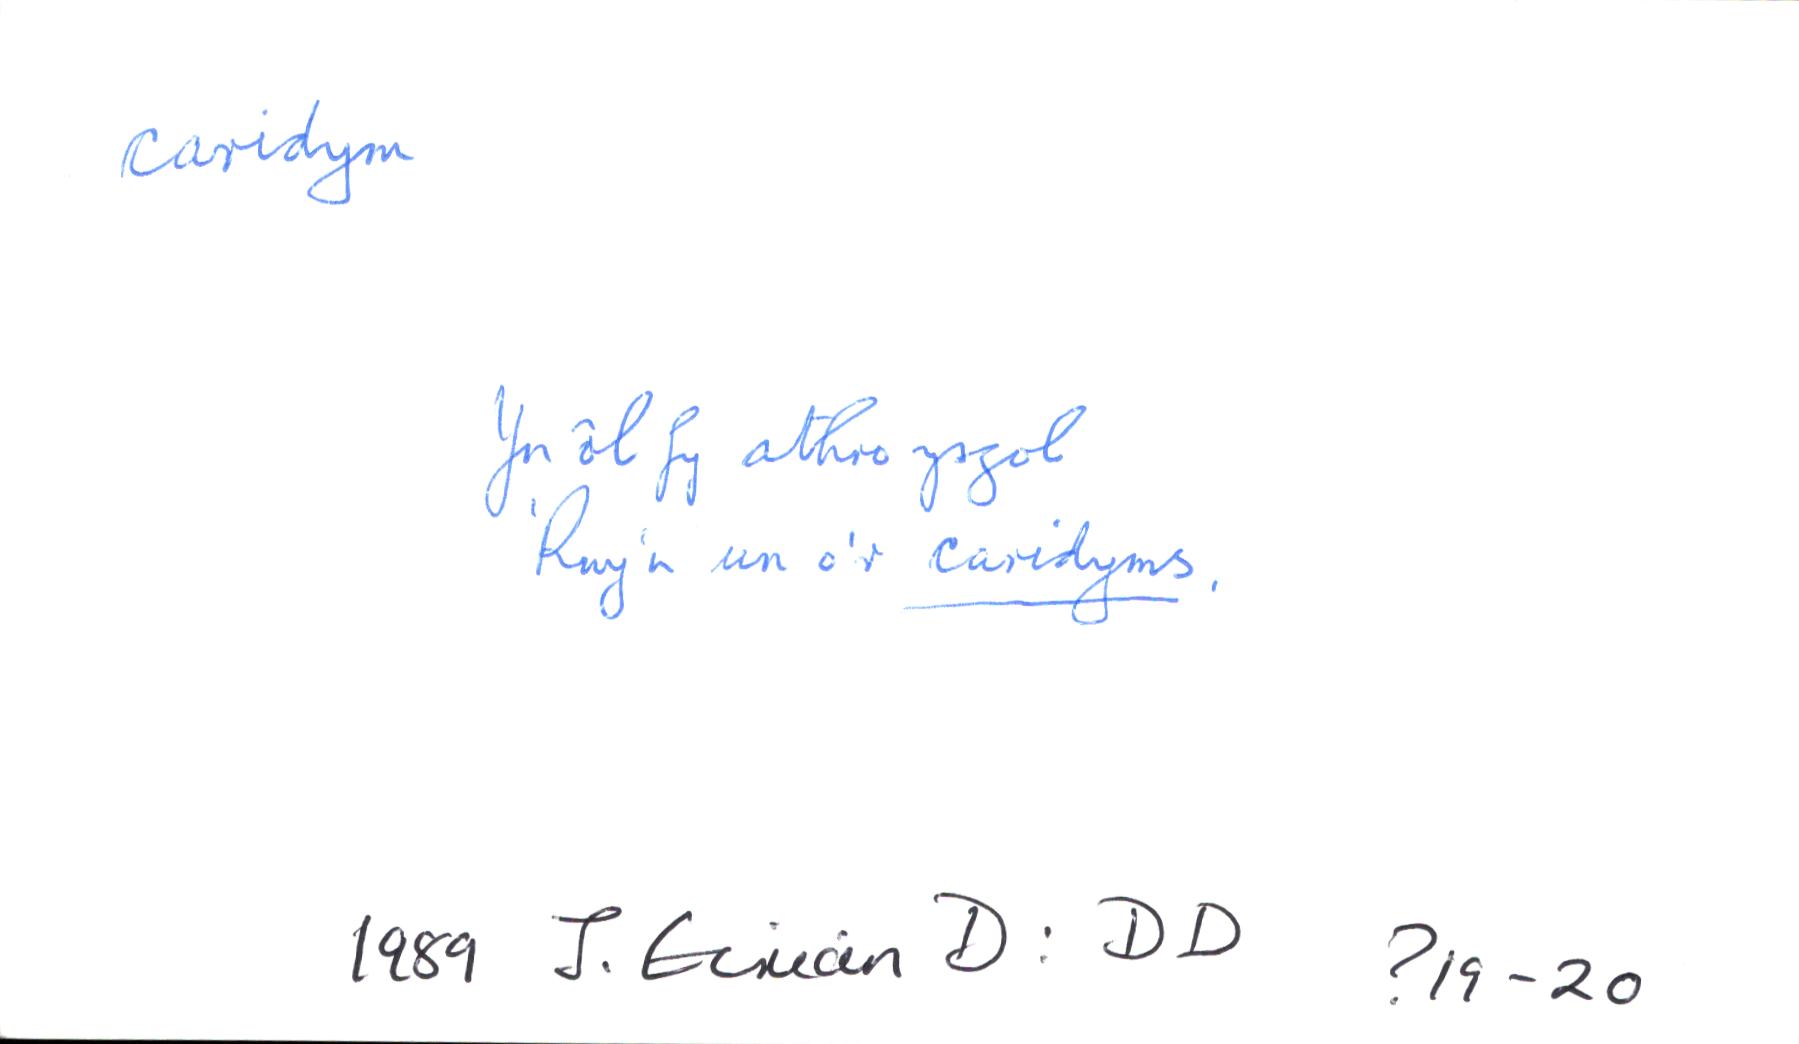 caridym
Yn ôl fy athro ysgol
'Rwy'n un o'r caridyms,
1989 J. Eirian D: DD ?19-20